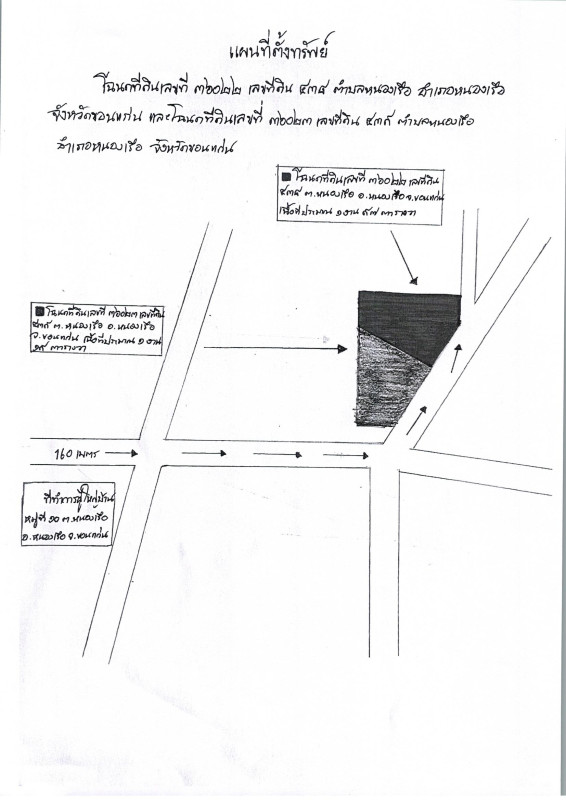 แผนที่ตั้งทรัพย์
โฉนดที่ดินเลขที่ ๓๖๐๒๒ เลขที่ดิน ๔๓๔ ตำบลหนองเรือ อำเภอหนองเรือ
จังหวัดขอนแก่น และโฉนดที่ดินเลขที่ ๓๖๐๒๓ เลขที่ดิน ๔๓๕ ตำบลหนองเรือ
อำเภอหนองเรือ จังหวัดขอนแก่น
โฉนดที่ดินเลขที่ ๓๖๐๒๒ เลขที่ดิน
๔๓๔ ต.หนองเรือ อ.หนองเรือ จ.ขอนแก่น
เนื้อที่ประมาณ ๑ งาน ๙๗ ตารางวา
โฉนดที่ดินเลขที่ ๓๖๐๒๓ เลขที่ดิน
๔๓๕ ต.หนองเรือ อ.หนองเรือ
จ.ขอนแก่น เนื้อที่ประมาณ ๑ งาน
ตารางวา
160 เมตร
ที่ทำการผู้ใหญ่บ้าน
หมู่ที่ ๑๐ ต.หนองเรือ
อ.หนองเรือ จ.ขอนแก่น